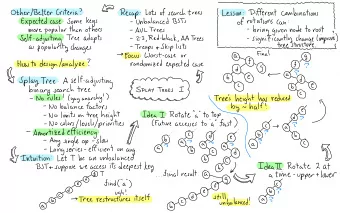 Other/Better Criteria?
Expected case Some keys
more popular than others
Self-adjusting Tree adapts
as popularity changes
How to design/analyze?
Splay Tree A self-adjusting
binary search tree
- No rules! (yay anarchy!)
- No balance factors
- No limits on tree height
- No colors/levels/priorities
- Amortized efficiency
- Any single op - slow
- Long series - efficient on avg.
Intuition Let T be an unbalanced
BST + suppose we access its deepest key
find("a")
Tree restructures itself
Recap: Lots of search trees
- Unbalanced BSTs
- AVL Trees
- 2-3, Red-black, AA Trees
- Treaps + Skip lists
→ Focus: Worst-case or
randomized expected case
SPLAY TREES I
Idea I Rotate "a" to top
(Future accesses to "a" fast)
final result
still
unbalanced!
Lesson: Different combinations
of rotations can:
- bring given node to root
- significantly change (improve)
tree structure.
Final
Tree's height has reduced
by ~ half!
Idea II Rotate 2 at
a time - upper + lower